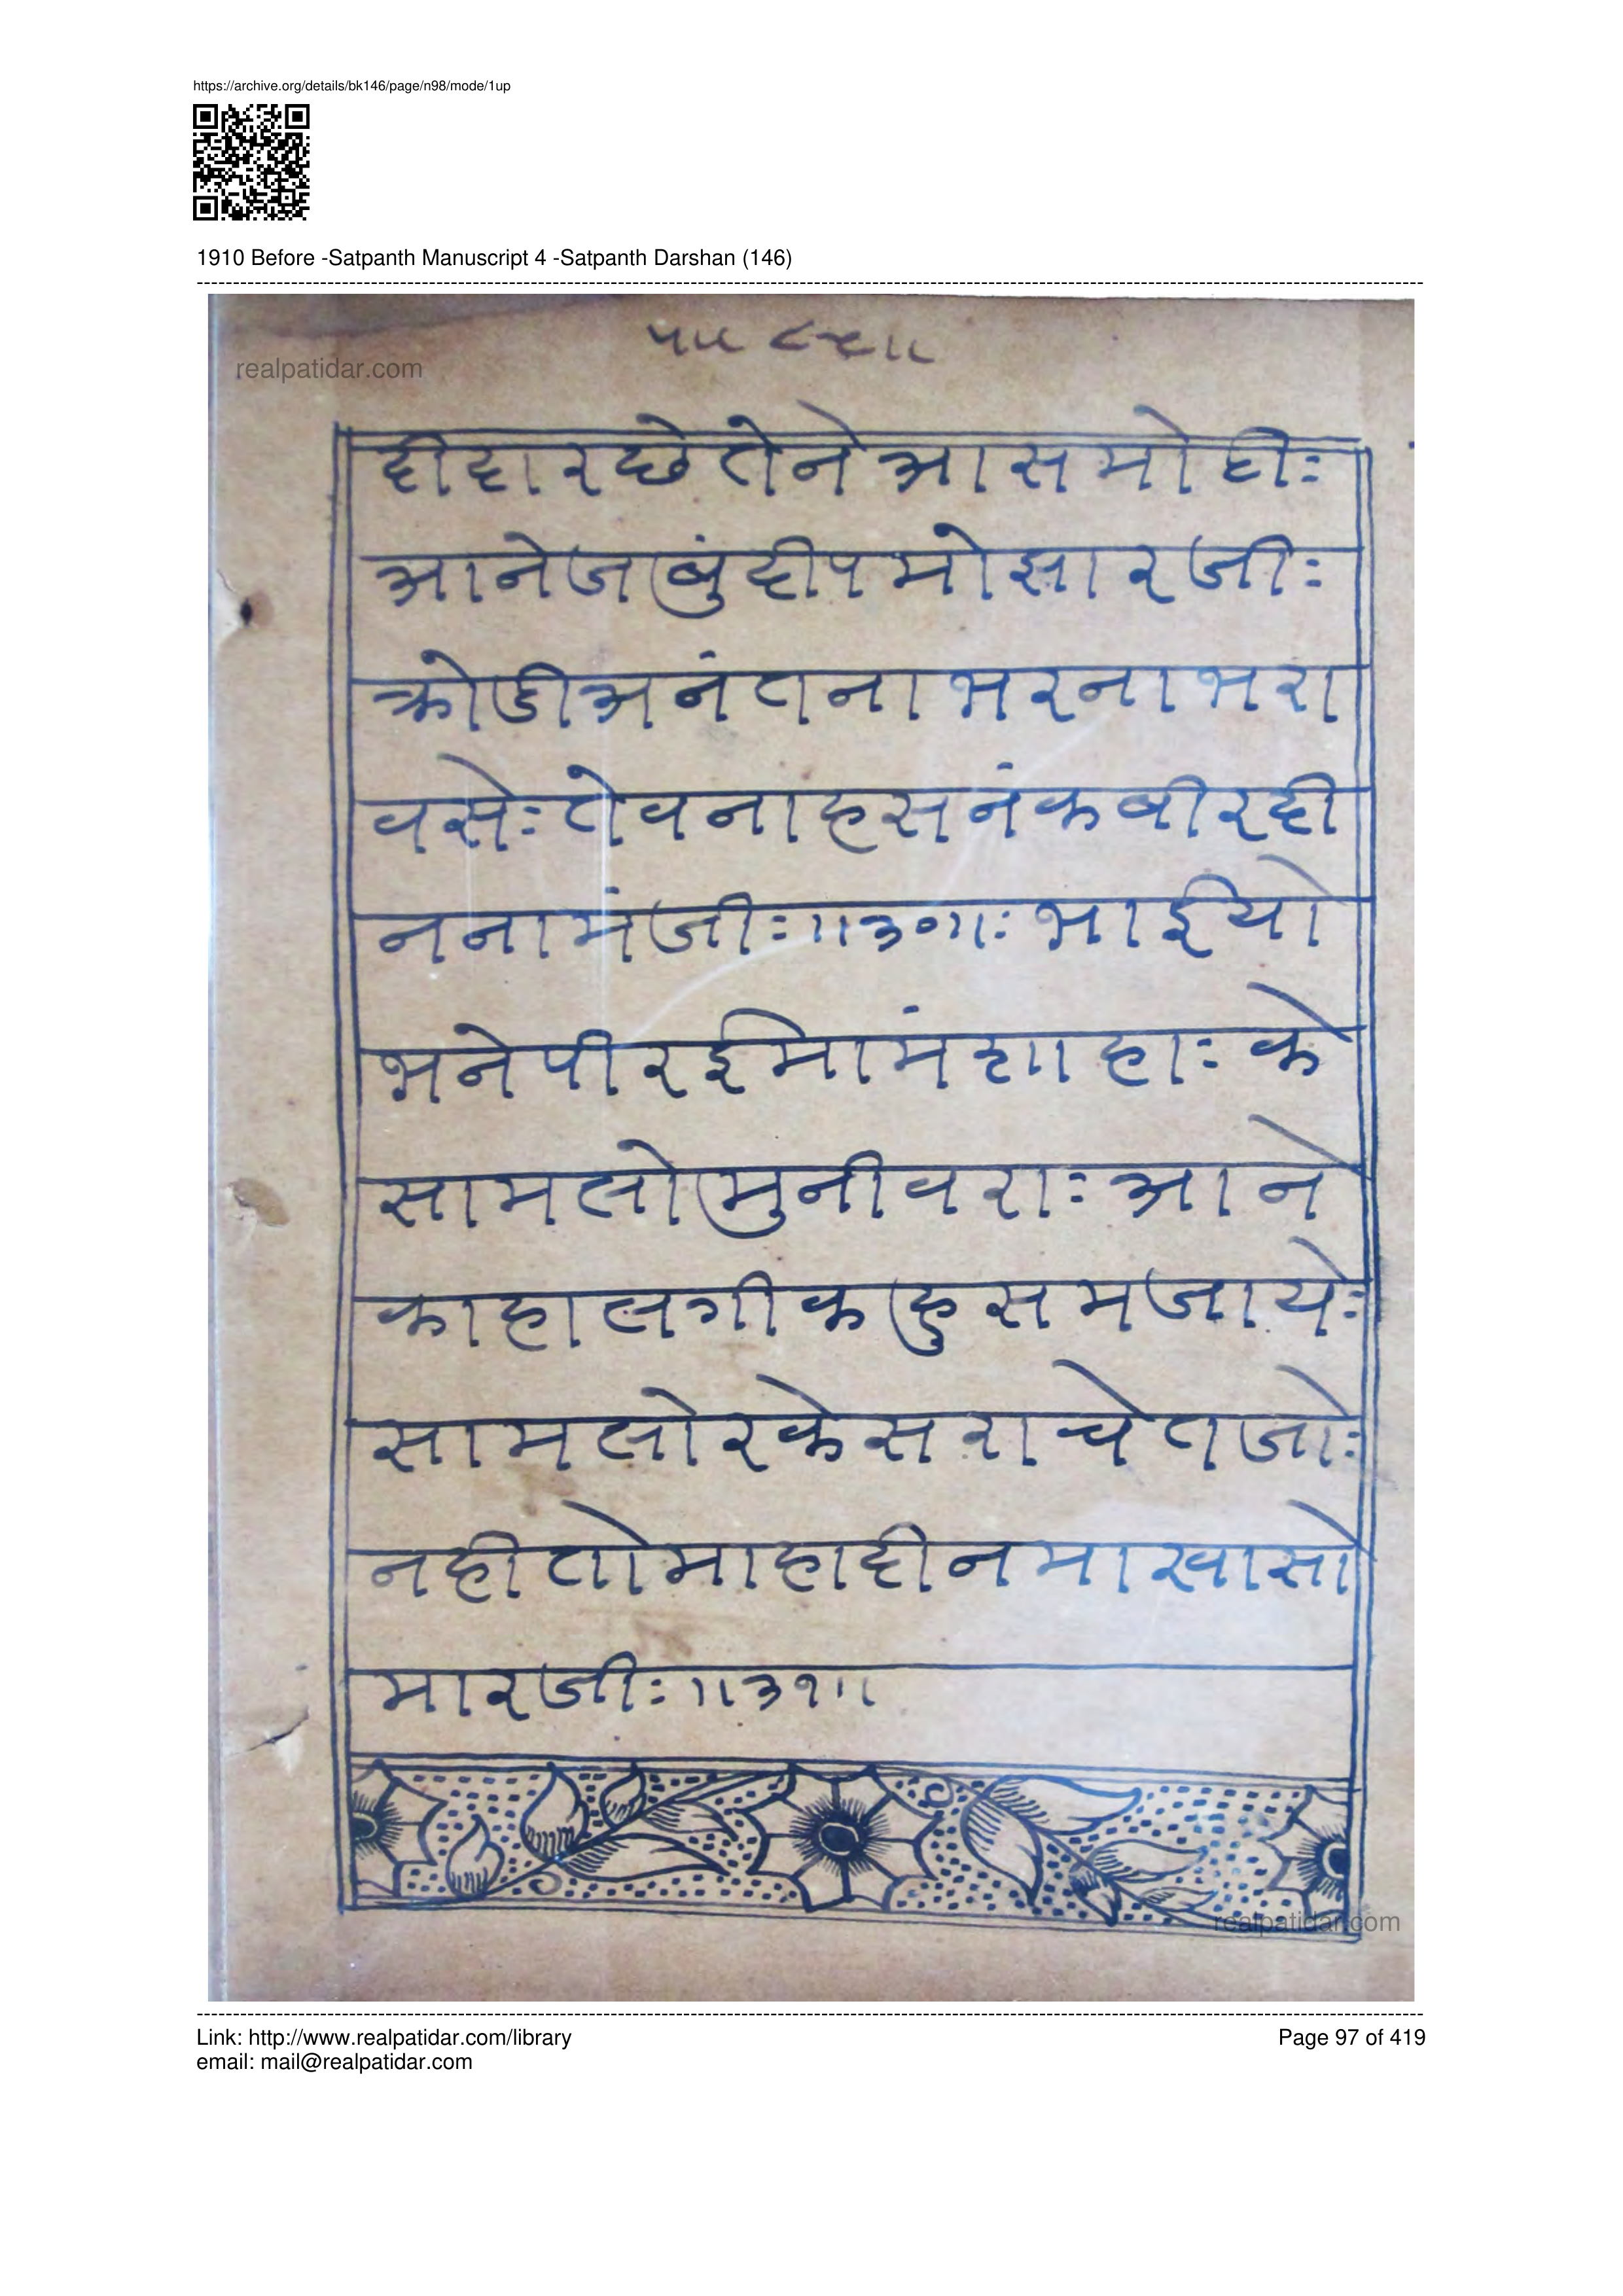 https://archive.org/details/bk146/page/n98/mode/1up
1910 Before -Satpanth Manuscript 4 -Satpanth Darshan (146)
realpatidar.com
दीदारछेतेनेआसमोटीः
आनेजबुंदीपमोझारजीः
क्रोडीअनंतनाभरनाभरा
वसेःतेवनाहसनंकबीरदी
ननामंजीः॥३०॥ःभाईयो
भनेपीरईमामंशाहाःके
सामलोमुनीवराःआने
काहालगीकहुसमजायेः
सामलोरकेसराचेतजोः
नहीतोमाहादीनमाखासो
मारजीः॥३१॥
realpatidar.com
Link: http://www.realpatidar.com/library
Page 97 of 419
email: mail@realpatidar.com